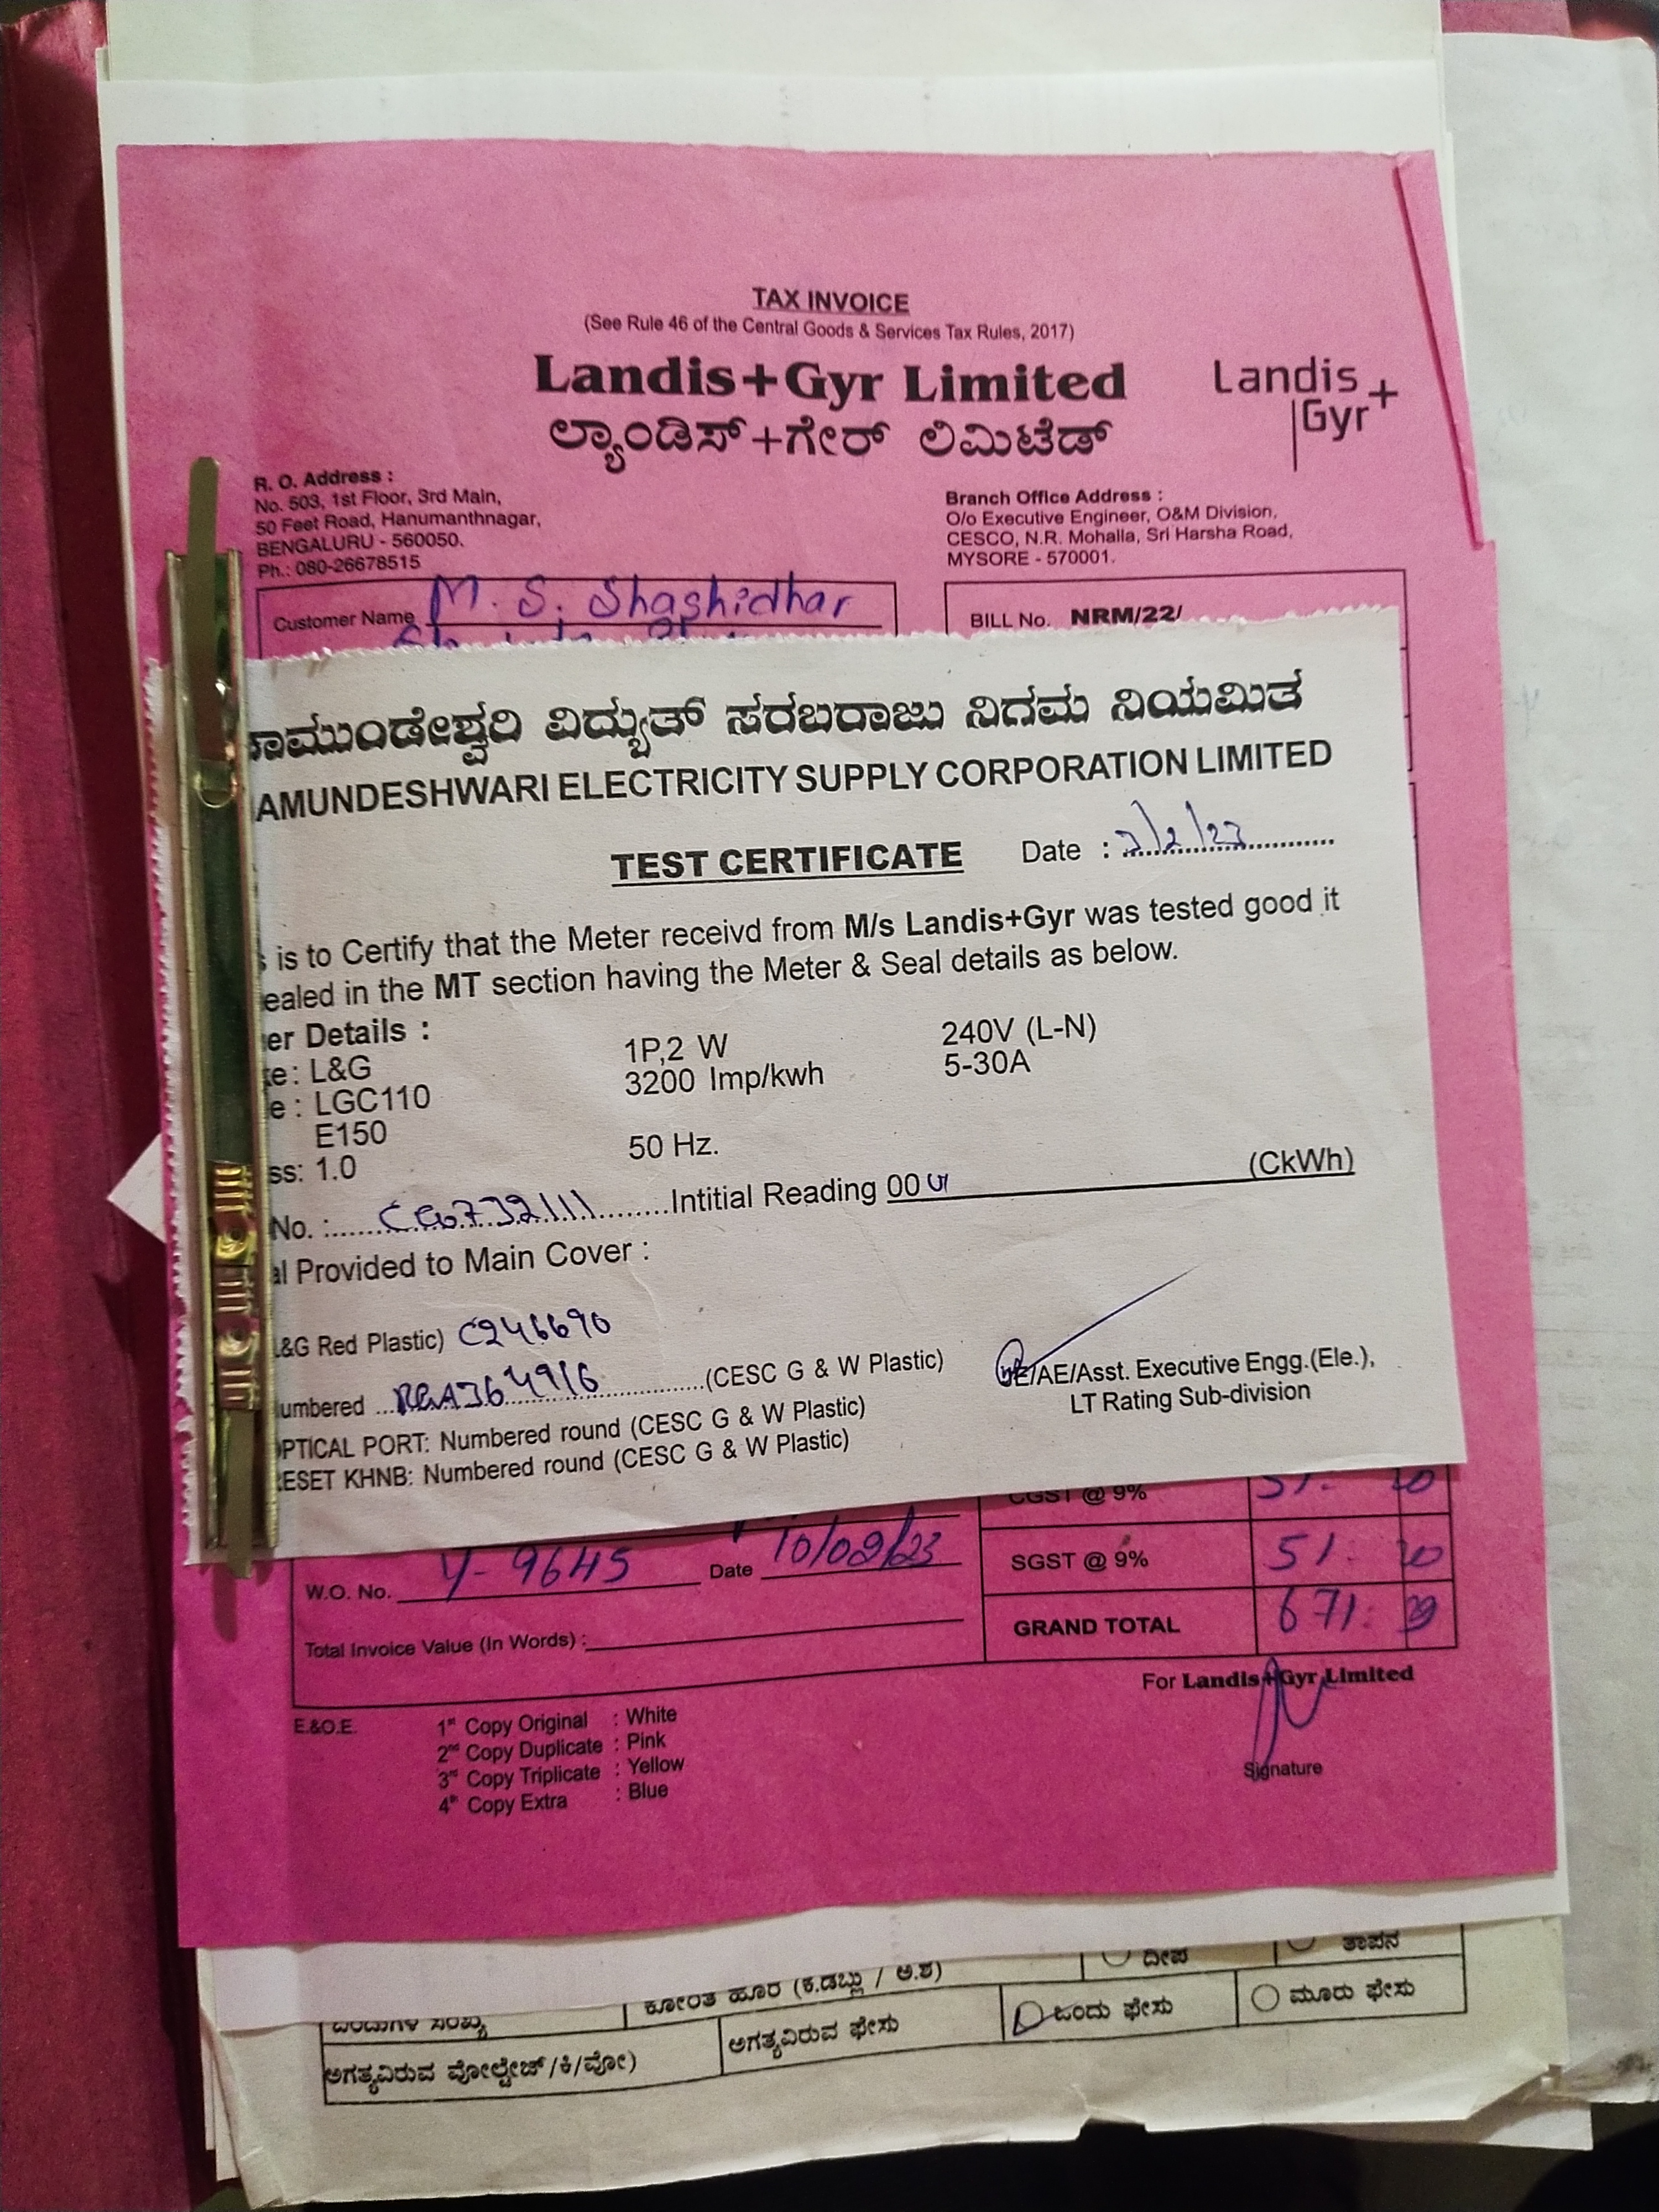 TAX INVOICE
(See Rule 46 of the Central Goods & Services Tax Rules, 2017)
Landis+Gyr Limited
Landis
Gyr+
ಲ್ಯಾಂಡಿಸ್+ಗೇರ್ ಲಿಮಿಟೆಡ್
R. O. Address :
No. 503, 1st Floor, 3rd Main,
50 Feet Road, Hanumanthnagar,
BENGALURU - 560050.
Ph.: 080-26678515
Branch Office Address :
O/o Executive Engineer, O&M Division,
CESCO, N.R. Mohalla, Sri Harsha Road,
MYSORE - 570001.
Customer Name M. S. Shashidhar
BILL No. NRM/22/
ಚಾಮುಂಡೇಶ್ವರಿ ವಿದ್ಯುತ್ ಸರಬರಾಜು ನಿಗಮ ನಿಯಮಿತ
AMUNDESHWARI ELECTRICITY SUPPLY CORPORATION LIMITED
TEST CERTIFICATE Date : /2/23
s is to Certify that the Meter receivd from M/s Landis+Gyr was tested good it
ealed in the MT section having the Meter & Seal details as below.
er Details :
1P,2 W 240V (L-N)
ke: L&G
3200 Imp/kwh 5-30A
e : LGC110
E150
50 Hz.
ss: 1.0
No. : Intitial Reading 00 (CkWh)
al Provided to Main Cover :
L&G Red Plastic) C246690
umbered (CESC G & W Plastic)
OPTICAL PORT: Numbered round (CESC G & W Plastic)
RESET KHNB: Numbered round (CESC G & W Plastic)
JE/AE/Asst. Executive Engg.(Ele.),
LT Rating Sub-division
CGST @ 9% 51.
W.O. No. Y-9645 Date 10/02/23
SGST @ 9% 51.
Total Invoice Value (In Words) :
GRAND TOTAL 671.
For Landis+Gyr Limited
E.&O.E.
1st Copy Original : White
2nd Copy Duplicate : Pink
3rd Copy Triplicate : Yellow
4th Copy Extra : Blue
Signature
ದೀಪ ತಾಪನ
ಕೋರಿತ ಹೊರೆ (ಕಿ.ಡಬ್ಲು / ಅ.ಶ)
ಅಗತ್ಯವಿರುವ ಫೇಸು ಒಂದು ಫೇಸು ಮೂರು ಫೇಸು
ಅಗತ್ಯವಿರುವ ವೋಲ್ಟೇಜ್/ಕಿ/ವೋ)